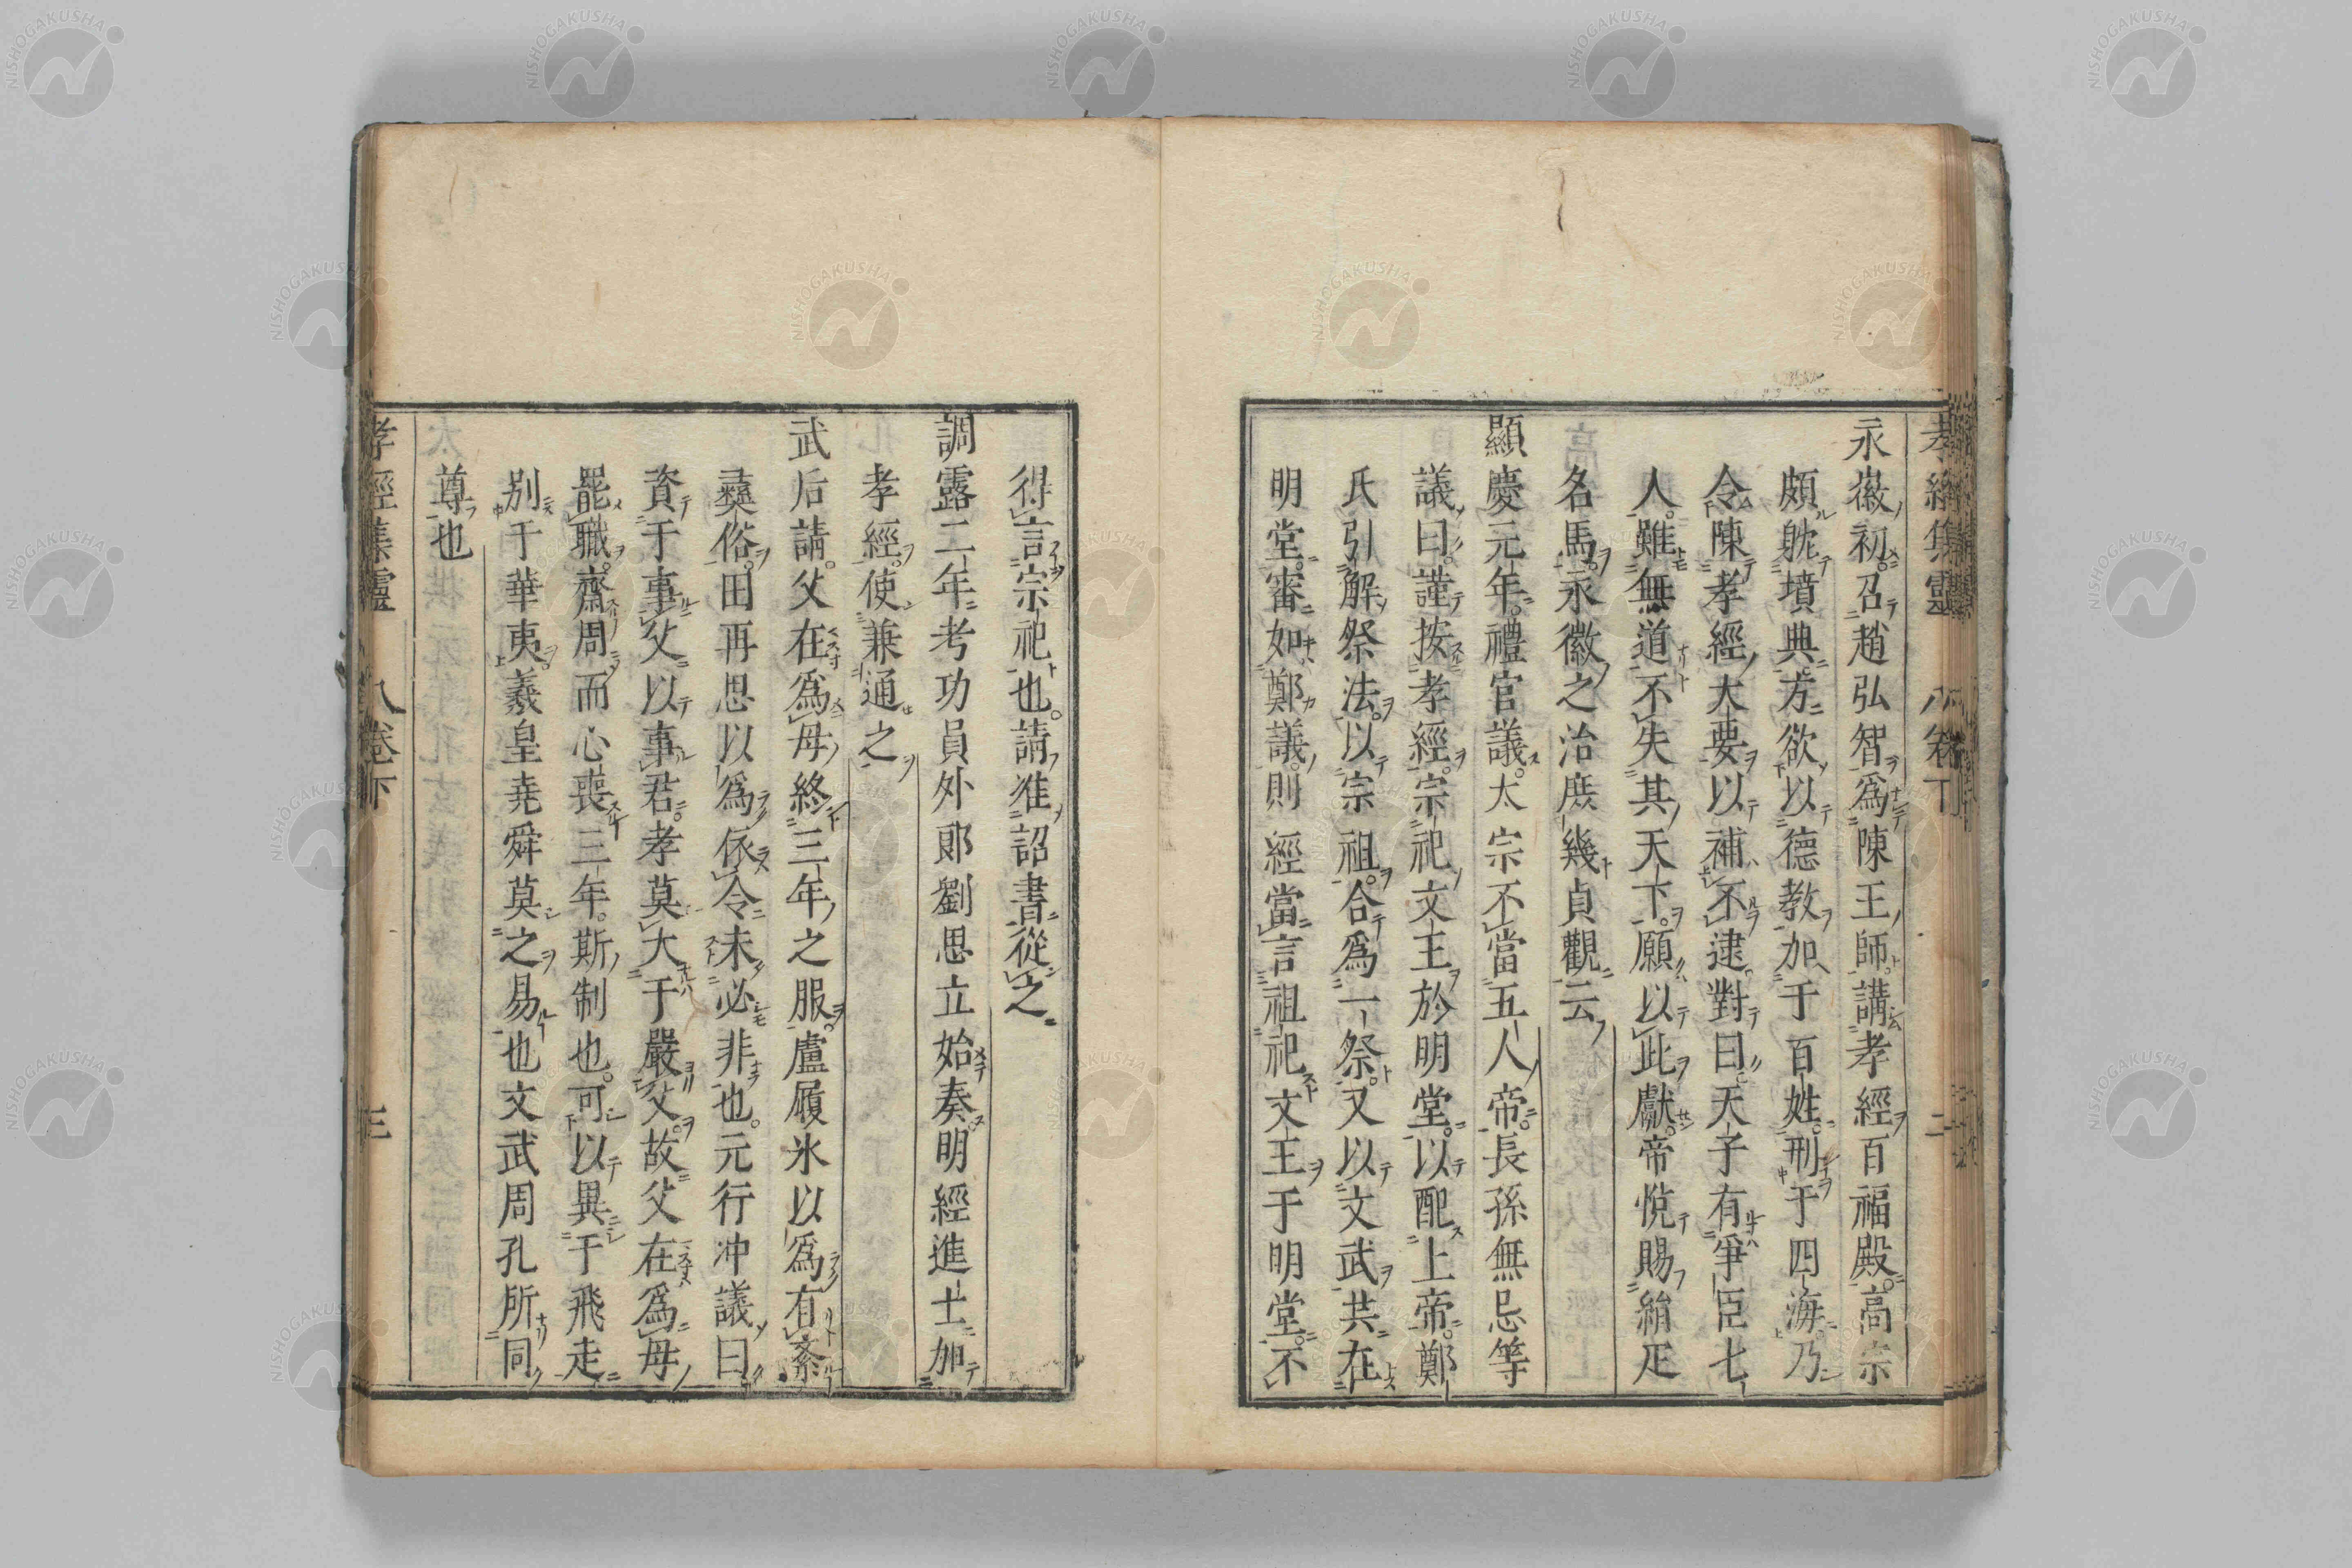 孝經集靈 卷下 二
永徽初召趙弘智爲陳王師講孝經百福殿高宗
頗躭墳典方欲以德教加于百姓刑于四海乃
令陳孝經大要以補不逮對曰天子有爭臣七
人雖無道不失其天下願以此獻帝悅賜絹疋
名馬永徽之治庶幾貞觀云
顯慶元年禮官議太宗不當五人帝長孫無忌等
議曰謹按孝經宗祀文王於明堂以配上帝鄭
氏引解祭法以宗祖合爲一祭又以文武共在
明堂審如鄭議則經當言祖祀文王于明堂不
得言宗祀也請准詔書從之
調露二年考功員外郎劉思立始奏明經進士加
孝經使兼通之
武后請父在爲母終三年之服盧履氷以爲有紊
彞俗田再思以爲依令未必非也元行冲議曰
資于事父以事君孝莫大于嚴父故父在爲母
罷職齋周而心喪三年斯制也可以異于飛走
別于華夷羲皇堯舜莫之易也文武周孔所同
尊也
孝經集靈 卷下 三
NISHOGAKUSHA